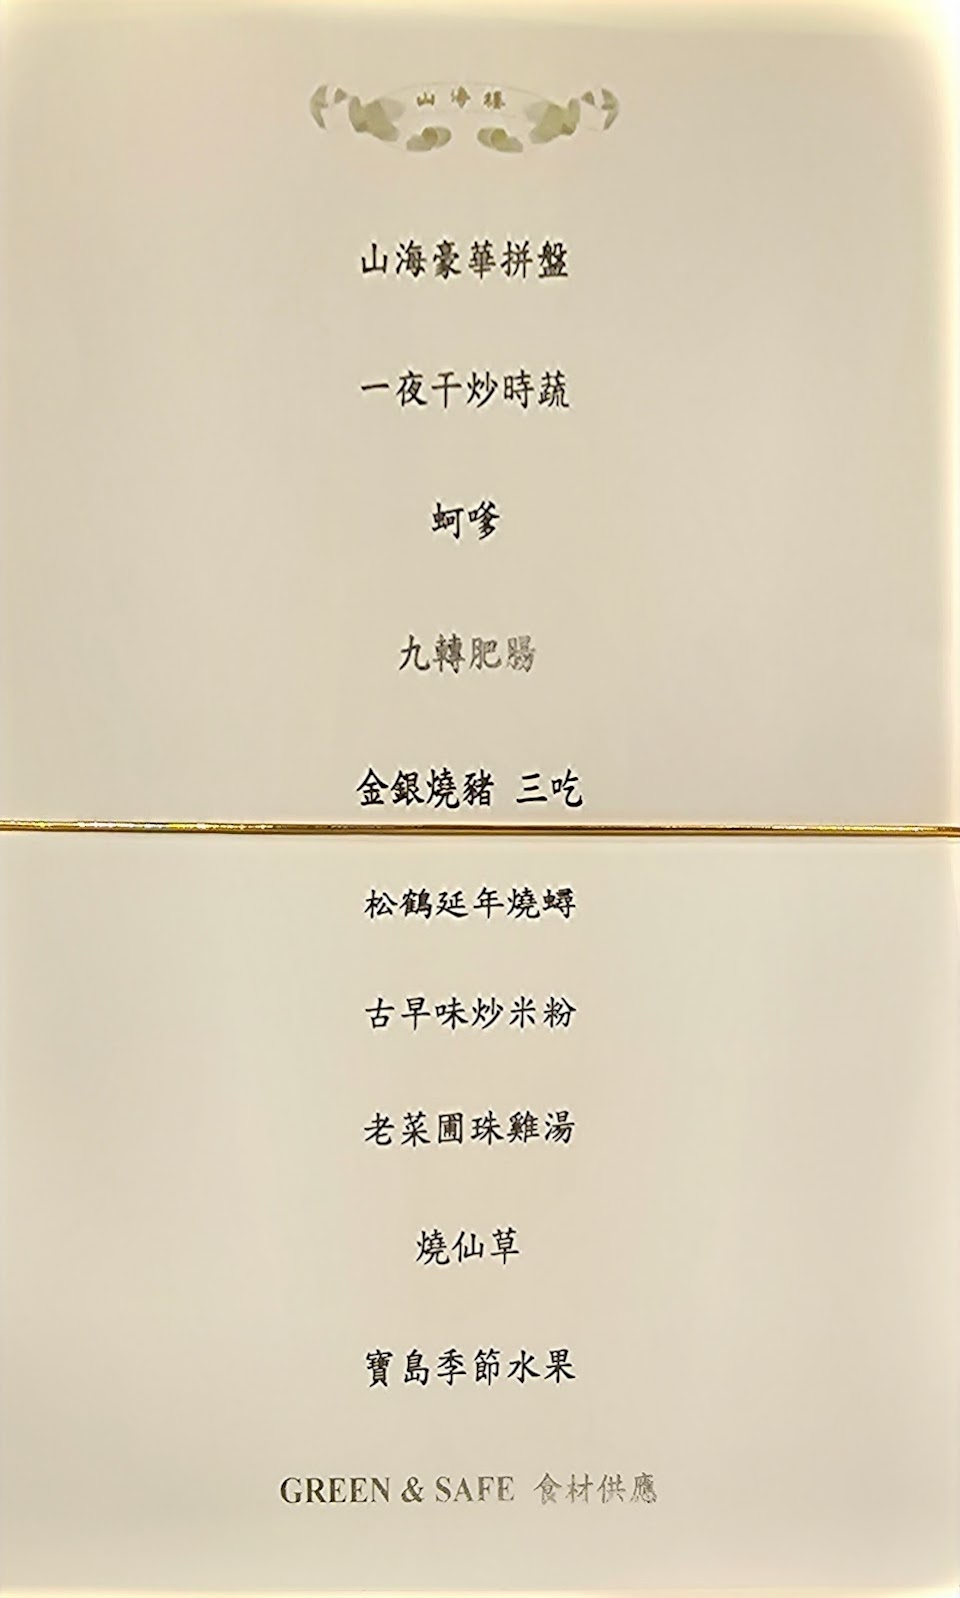 山海樓
山海豪華拼盤
一夜干炒時蔬
蚵嗲
九轉肥腸
金銀燒豬 三吃
松鶴延年燒蟳
古早味炒米粉
老菜圃珠雞湯
燒仙草
寶島季節水果
GREEN & SAFE 食材供應